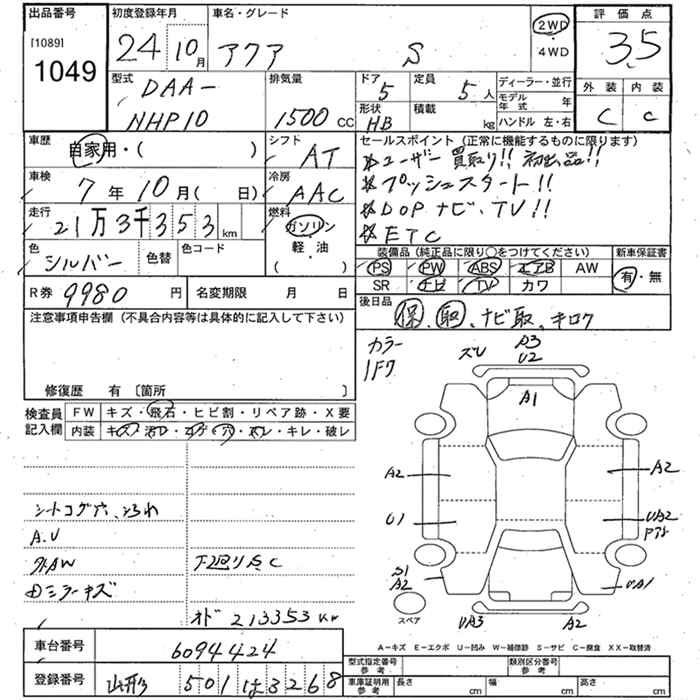 出品番号 初度登録年月 車名・グレード 評価点
[1089] 1049 24年 10月 アクア S 2WD ・4WD 3.5
型式 DAA- NHP10 排気量 1500 CC
ドア 5 定員 5人 ディーラー・並行
モデル年式 年
形状 HB 積載 kg ハンドル 左・右
外装 内装
C C
車歴 自家用・( ) シフト AT
セールスポイント(正常に機能するものに限ります)
* ユーザー買取り!! 初出品!!
車検 7年10月( 日) 冷房 AAC
* プッシュスタート!!
走行 21万3千353km 燃料 ガソリン 軽・油 ・( )
* DOPナビ、TV!!
* ETC
色 シルバー 色替 色コード
装備品(純正品に限り○をつけてください) 新車保証書
PS PW ABS エアB AW 有・無
SR ナビ TV カワ
R券 9980円 名変期限 月 日
後日品 保、取、ナビ取、キロク
注意事項申告欄(不具合内容等は具体的に記入して下さい)
修復歴 有 〔箇所 〕
カラー 1F7
ズレ A3 U2
A1
検査員記入欄 FW キズ・飛石・ヒビ割・リペア跡・X要
内装 キズ・汚レ・コゲ・穴・スレ・キレ・破レ
A2 A2
シートコゲ穴、
U1 UA2
A.U
外AW 下廻り点C
S1 A2 UA1
ミラーキズ
オド 213353km
スペア UA3 A2
車台番号 6094424
A-キズ E-エクボ U-凹み W-補修跡 S-サビ C-腐食 XX-取替済
型式指定番号 参考 類別区分番号 参考
登録番号 山形 501 は 3268
車庫証明用 参考 長さ cm 幅 cm 高さ cm